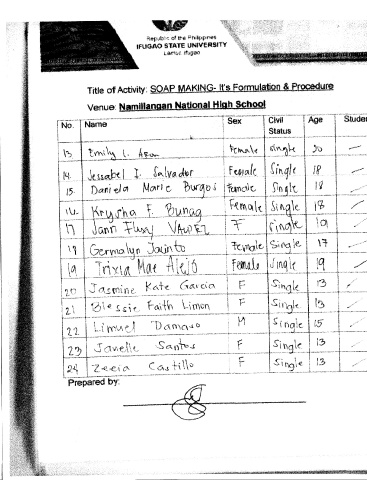 Republic of the Philippines
IFUGAO STATE UNIVERSITY
Lamut, Ifugao
Title of Activity: SOAP MAKING- It's Formulation & Procedure
Venue: Namillangan National High School
No. Name Sex Civil Status Age Studen
13. Emily L. Female Single 20
14 Jessabel I. Salvador Female Single 18
15. Daniela Marie Burgos Female Single 18
16. Krysha F. Bunag Female Single 18
17 Jann Flussy F Single 19
18 Germalyn Jacinto Female Single 17
19 Trixia Mae Alejo Female Single 19
20 Jasmine Kate Garcia F Single 13
21 Blessie Faith Limon F Single 13
22 Limuel Damaso M Single 15
23 Janelle Santos F Single 13
24 Zeeia Castillo F Single 13
Prepared by: